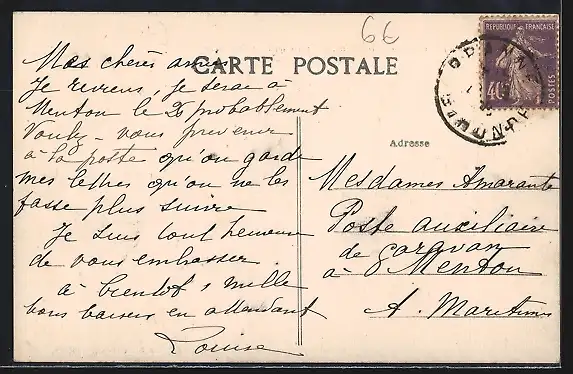 66
CARTE POSTALE
REPUBLIQUE FRANÇAISE
40c
POSTES
Mes chères amies
Je reviens, je serai à
Menton le 26 probablement
Voulez-vous prévenir
à la poste qu'on garde
mes lettres qu'on ne les
fasse plus suivre
Je suis tout heureuse
de vous embrasser
à bientôt, mille
bons baisers en attendant
Louise
Adresse
Mesdames Amarante
Poste auxiliaire
de Garavan
à Menton
A. Maritimes